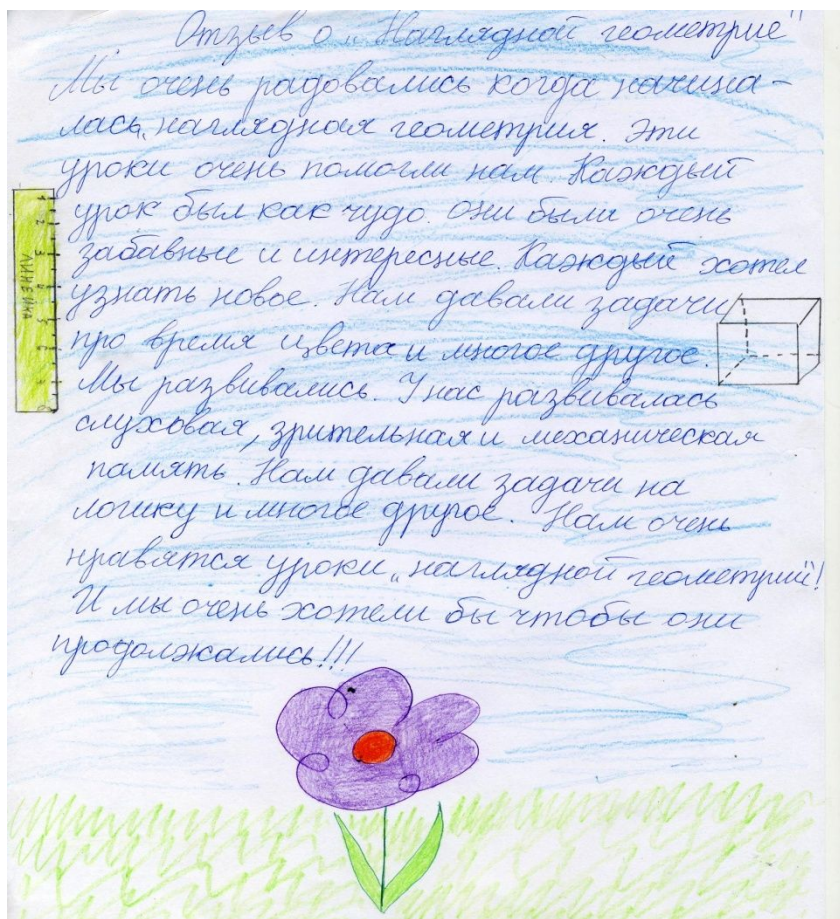 Отзыв о „Наглядной геометрие"
Мы очень радовались когда начина-
лась „наглядная геометрия. Эти
уроки очень помогли нам. Каждый
урок был как чудо. Они были очень
забавные и интересные. Каждый хотел
узнать новое. Нам давали задачи
про время цвета и многое другое.
Мы развивались. У нас развивалась
слуховая, зрительная и механическая
память. Нам давали задачи на
логику и многое другое. Нам очень
нравятся уроки „наглядной геометрий!
И мы очень хотели бы чтобы они
продолжались!!!
ЛИНЕЙКА